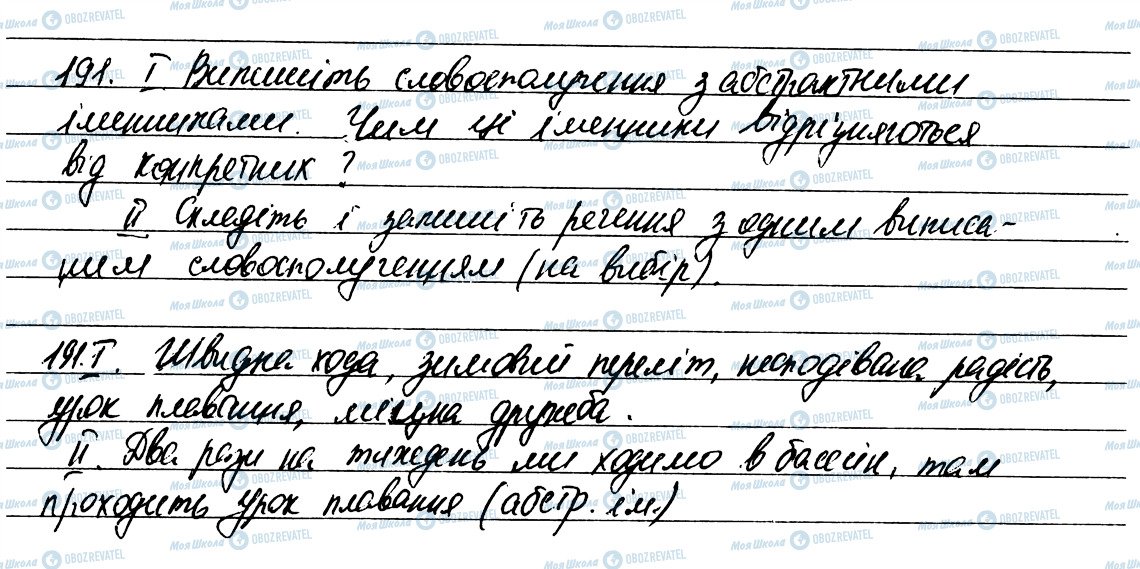 191. I Випишіть словосполучення з абстрактними
іменниками. Чим ці іменники відрізняються
від конкретних?
II Складіть і запишіть речення з одним виписа-
ним словосполученням (на вибір).
191.I. Швидка хода, зимовий переліт, несподівана радість,
урок плавання, міцна дружба.
II. Два рази на тиждень ми ходимо в бассейн, там
проходить урок плавання (абстр. ім.)